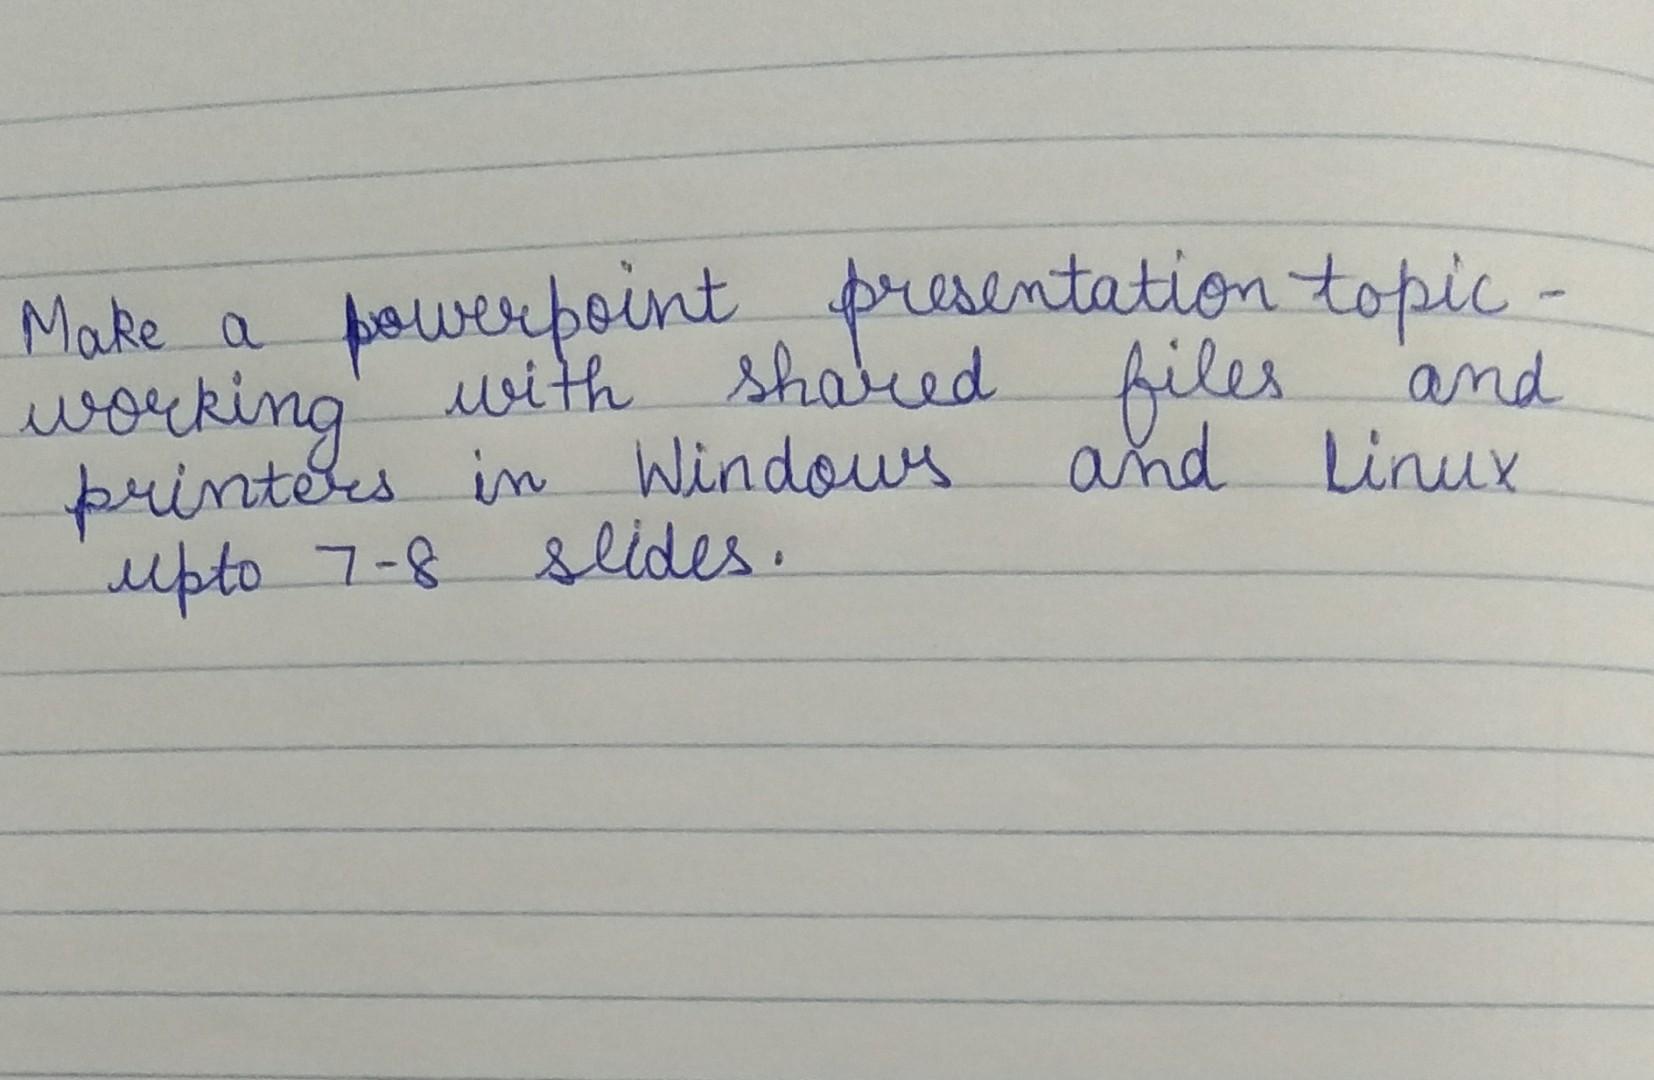 Make a powerpoint presentation topic -
working with shared files and
printers in Windows and Linux
upto 7-8 slides.